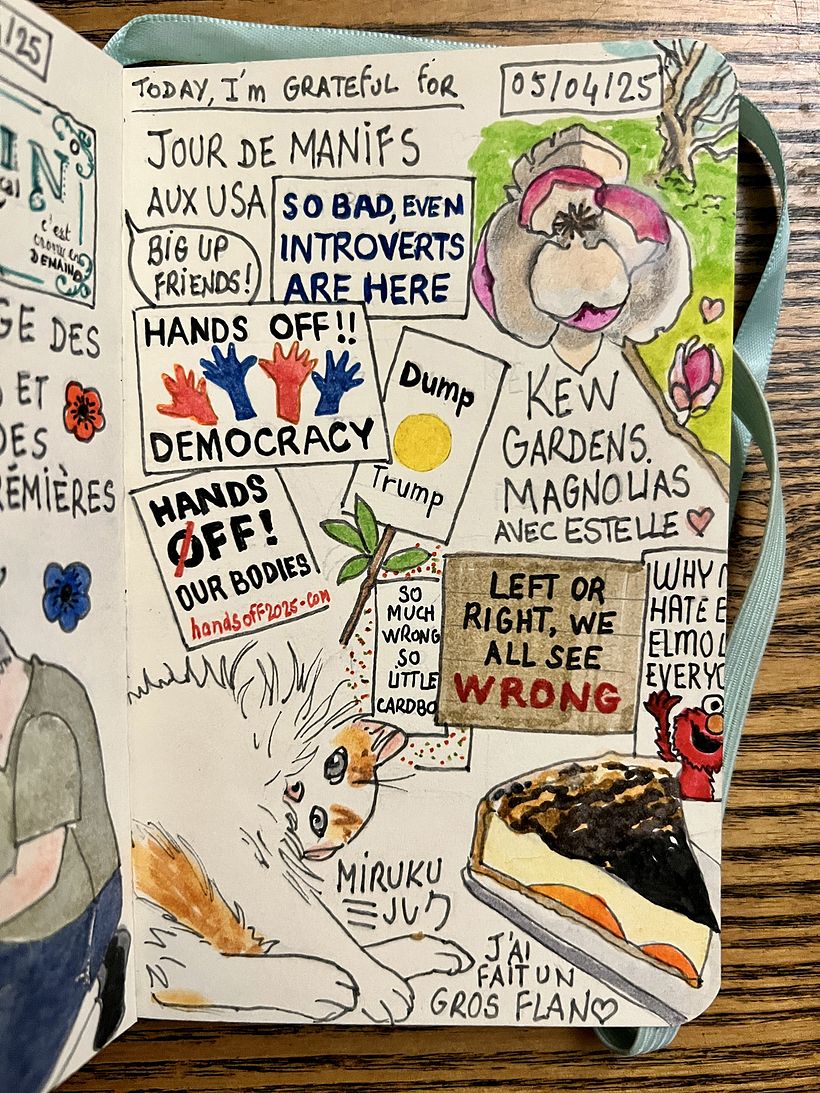 /25
IN
c'est
DEMAIN
GE DES
ET
DES
REMIÈRES
TODAY, I'm GRATEFUL FOR
05/04/25
JOUR DE MANIFS
AUX USA
BIG UP
FRIENDS!
SO BAD, EVEN
INTROVERTS
ARE HERE
HANDS OFF!!
DEMOCRACY
Dump
Trump
KEW
GARDENS.
MAGNOLIAS
AVEC ESTELLE
HANDS
OFF!
OUR BODIES
handsoff2025.com
SO
MUCH
WRONG
SO
LITTLE
CARDBO
LEFT OR
RIGHT, WE
ALL SEE
WRONG
WHY
HATE E
ELMO L
EVERYO
MIRUKU
ミルク
J'AI
FAIT UN
GROS FLAN